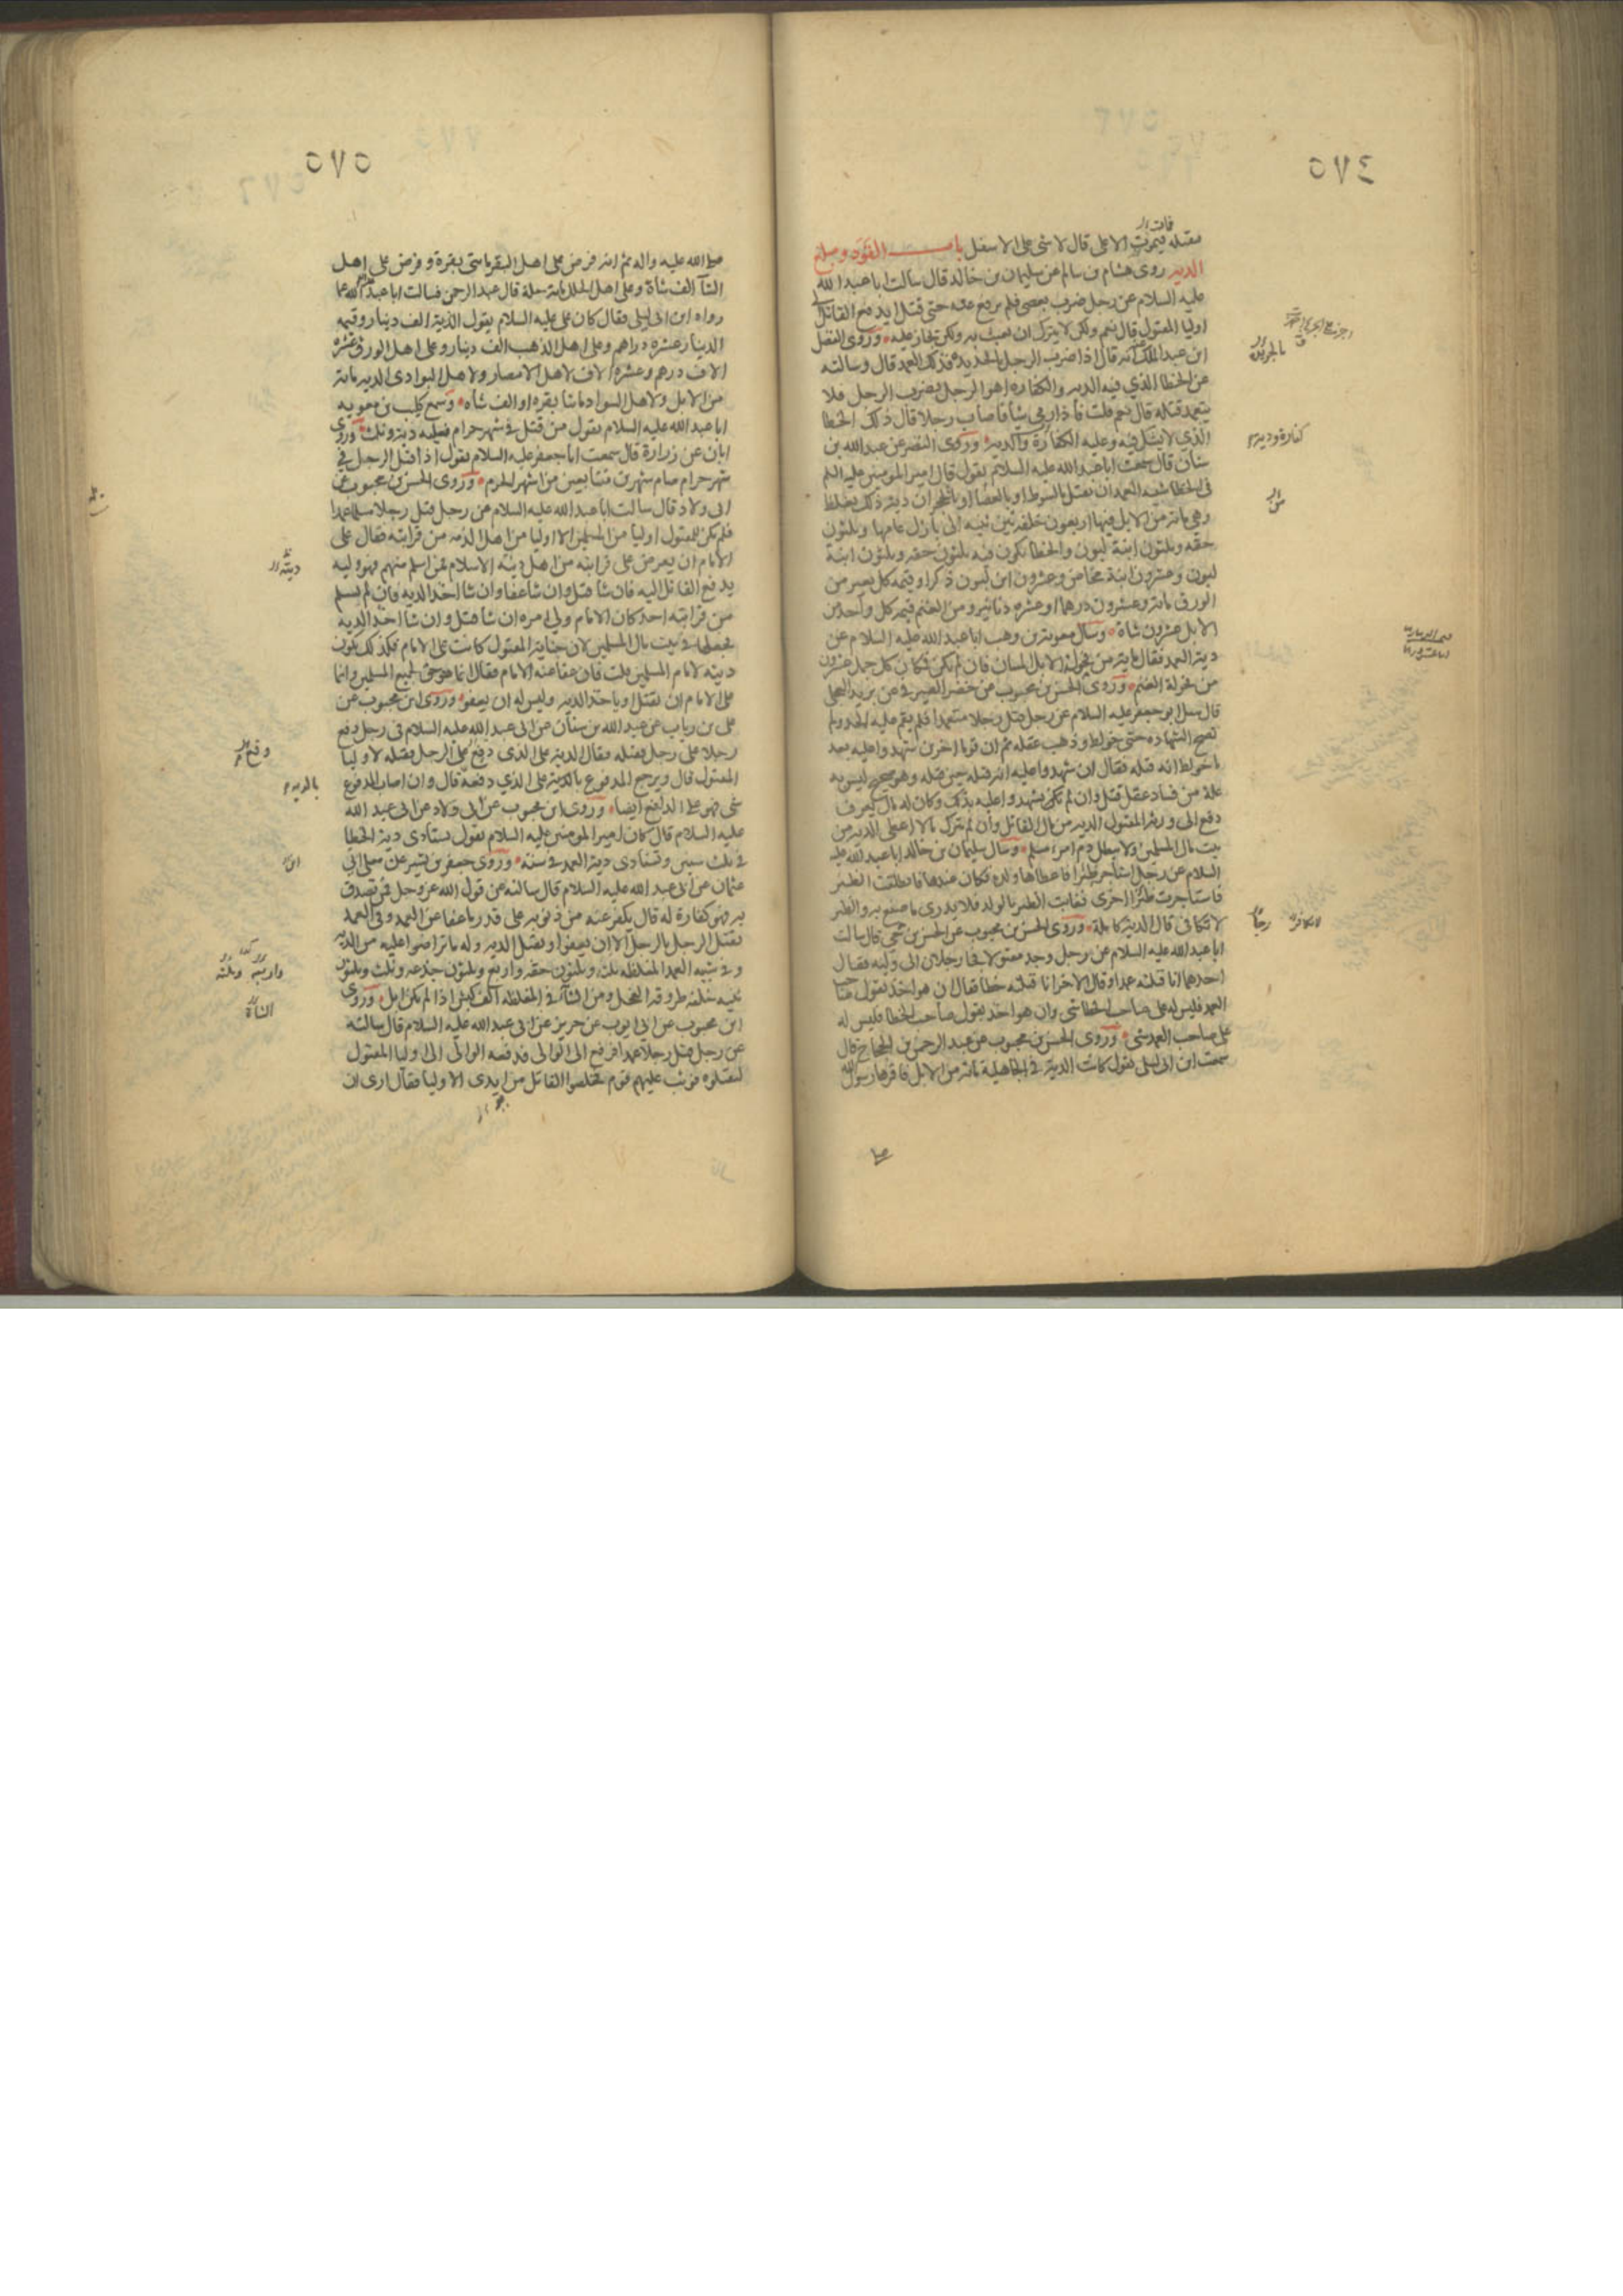 ٥٧٤
فمات
مقتله فيموت الاعلى قال لا شي على الاسفل باب القود ومبلغ
الدية روى هشام بن سالم عن سليمان بن خالد قال سالت ابا عبد الله
عليه السلام عن رجل ضرب بعصى فلم يرفع عنه حتى قتل ايدفع القاتل الى
اوليا المقتول قال نعم ولكن لا يترك ان يعبث به ولكن يجاز عليه وروى الفضل
ابن عبد الملك عنه انه قال اذا ضرب الرجل بالحديدة فذلك العمد قال وسالته
عن الخطا الذي فيه الدية والكفارة اهو الرجل يضرب الرجل فلا
يتعمد قتله قال نعم قلت فاذا رمى شيأ فاصاب رجلا قال ذلك الخطا
الذي لا يشك فيه وعليه الكفارة والدية وروى النضر عن عبد الله بن
سنان قال سمعت ابا عبد الله عليه السلام يقول قال امير المومنين عليه السلم
في الخطا شبه العمد ان يقتل بالسوط او بالعصا او بالحجر ان دية ذلك يغلظ
وهي مائة من الابل فيها اربعون خلفة بين ثنيه الى بازل عامها وثلثون
حقه وثلثون ابنة لبون والخطا يكون فيه ثلثون حقه وثلثون ابنة
لبون وعشرون ابنة مخاض وعشرون ابن لبون ذكرا وقيمه كل بعير من
الورق مائة وعشرون درهما او عشره دنانير ومن الغنم قيمه كل واحد من
الابل عشرون شاة وسال معوية بن وهب ابا عبد الله عليه السلام عن
دية العمد فقال مائة من فحولة الابل المسان فان لم يكن فكان كل جمل عشرون
من فحولة الغنم وروى الحسن بن محبوب عن خضر الصيرفي عن بريد العجلي
قال سئل ابو جعفر عليه السلام عن رجل قتل رجلا متعمدا فلم يقم عليه الحد ولم
تصح الشهاده حتى خولط وذهب عقله ثم ان قوما اخرين شهدوا عليه بعد
ما خولط انه قتله فقال ان شهدوا عليه انه قتله حين قتله وهو صحيح ليس به
علة من فساد عقل قتل وان لم يكن يشهدوا عليه بذلك وكان له مال يعرف
دفع الى ورثة المقتول الدية من مال القاتل وان لم يترك مالا اعطى الدية من
بيت مال المسلمين ولا يبطل دم امرء مسلم وسال سليمان بن خالد ابا عبد الله عليه
السلام عن رجل استأجر ظئرا فاعطاها ولده فكان عندها فانطلقت الظئر
فاستاجرت ظئرا اخرى فغابت الظئر بالولد فلا يدرى ما صنع به والظئر
لا تكافى قال الدية كاملة وروى الحسن بن محبوب عن الحسن بن حي قال سالت
ابا عبد الله عليه السلام عن رجل وجد مقتولا فجا رجلان الى وليه فقال
احدهما انا قتلته عمدا وقال الاخر انا قتلته خطا فقال ان هو اخذ بقول صاحب
العمد فليس له على صاحب الخطا شي وان هو اخذ بقول صاحب الخطا فليس له
على صاحب العمد شي وروى الحسن بن محبوب عن عبد الرحمن بن الحجاج قال
سمعت ابن ابى ليلى يقول كانت الدية في الجاهلية مائة من الابل فاقرها رسول الله
كفارة ودية
٥٧٥
صلى الله عليه واله ثم انه فرض على اهل البقر مائتي بقرة وفرض على اهل
الشآ الف شاة وعلى اهل الحلل مائة حلة قال عبد الرحمن فسالت ابا عبد الله عما
رواه ابن ابى ليلى فقال كان على عليه السلام يقول الدية الف دينار وقيمه
الدينار عشره دراهم وعلى اهل الذهب الف دينار وعلى اهل الورق عشره
الاف درهم وعشره الاف لاهل الامصار ولاهل البوادى الدية مائة
من الابل ولاهل السواد مائتا بقره او الف شاه وسمع كليب بن معويه
ابا عبد الله عليه السلام يقول من قتل في شهر حرام فعليه دية وثلث وروى
ابان عن زرارة قال سمعت ابا جعفر عليه السلام يقول اذا قتل الرجل في
شهر حرام صام شهرين متتابعين من اشهر الحرم وروى الحسن بن محبوب عن
ابى ولاد قال سالت ابا عبد الله عليه السلام عن رجل قتل رجلا مسلما عمدا
فلم يكن للمقتول اوليا من المسلمين الا اوليا من اهل الذمه من قرابته فقال على
الامام ان يعرض على قرابته من اهل دينه الاسلام فمن اسلم منهم فهو وليه
يدفع القاتل اليه فان شا قتل وان شا عفا وان شا اخذ الديه فان لم يسلم
من قرابته احد كان الامام ولي امره ان شا قتل وان شا اخذ الديه
فجعلها في بيت مال المسلمين لان جناية المقتول كانت على الامام فكذلك يكون
ديته لامام المسلمين قلت فان عفا عنه الامام فقال انما هو حق لجميع المسلمين وانما
على الامام ان يقتل او ياخذ الدية وليس له ان يعفو وروى ابن محبوب عن
على بن رياب عن عبد الله بن سنان عن ابى عبد الله عليه السلام في رجل دفع
رجلا على رجل فقتله فقال الدية على الذى دفع على الرجل فقتله لاوليا
المقتول قال ويرجع المدفوع بالدية على الذي دفعه قال وان اصاب المدفوع
شي فهو على الدافع ايضا وروى ابن محبوب عن ابى ولاد عن ابى عبد الله
عليه السلام قال كان امير المومنين عليه السلام يقول تستادى دية الخطا
في ثلث سنين وتستادى دية العمد في سنه وروى جعفر بن بشير عن معلى ابى
عثمان عن ابى عبد الله عليه السلام قال سالته عن قول الله عز وجل فمن تصدق
به فهو كفارة له قال يكفر عنه من ذنوبه على قدر ما عفا عن العمد وفي العمد
يقتل الرجل بالرجل الا ان يعفوا او يقبل الدية وله ما تراضوا عليه من الدية
وفي شبه العمد المغلظه ثلث وثلثون حقه واربع وثلثون جذعه وثلث وثلثون
ثنيه خلفه طروقة الفحل ومن الشآ في المغلظه الف كبش اذا لم يكن ابل وروى
ابن محبوب عن ابى ايوب عن حريز عن ابى عبد الله عليه السلام قال سالته
عن رجل قتل رجلا عمدا فرفع الى الوالى فدفعه الوالى الى اوليا المقتول
ليقتلوه فوثب عليهم قوم فخلصوا القاتل من ايدى الاوليا فقال ارى ان
ديته
بالدية
الشاة